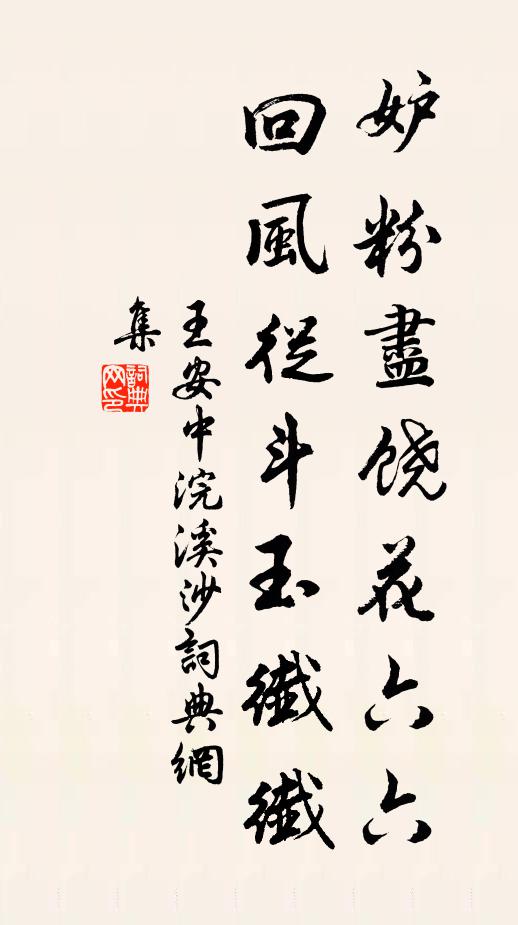 妒粉盡饶花六六
回風從斗玉纖纖
王安中浣溪沙詞典網
集
詞典网印